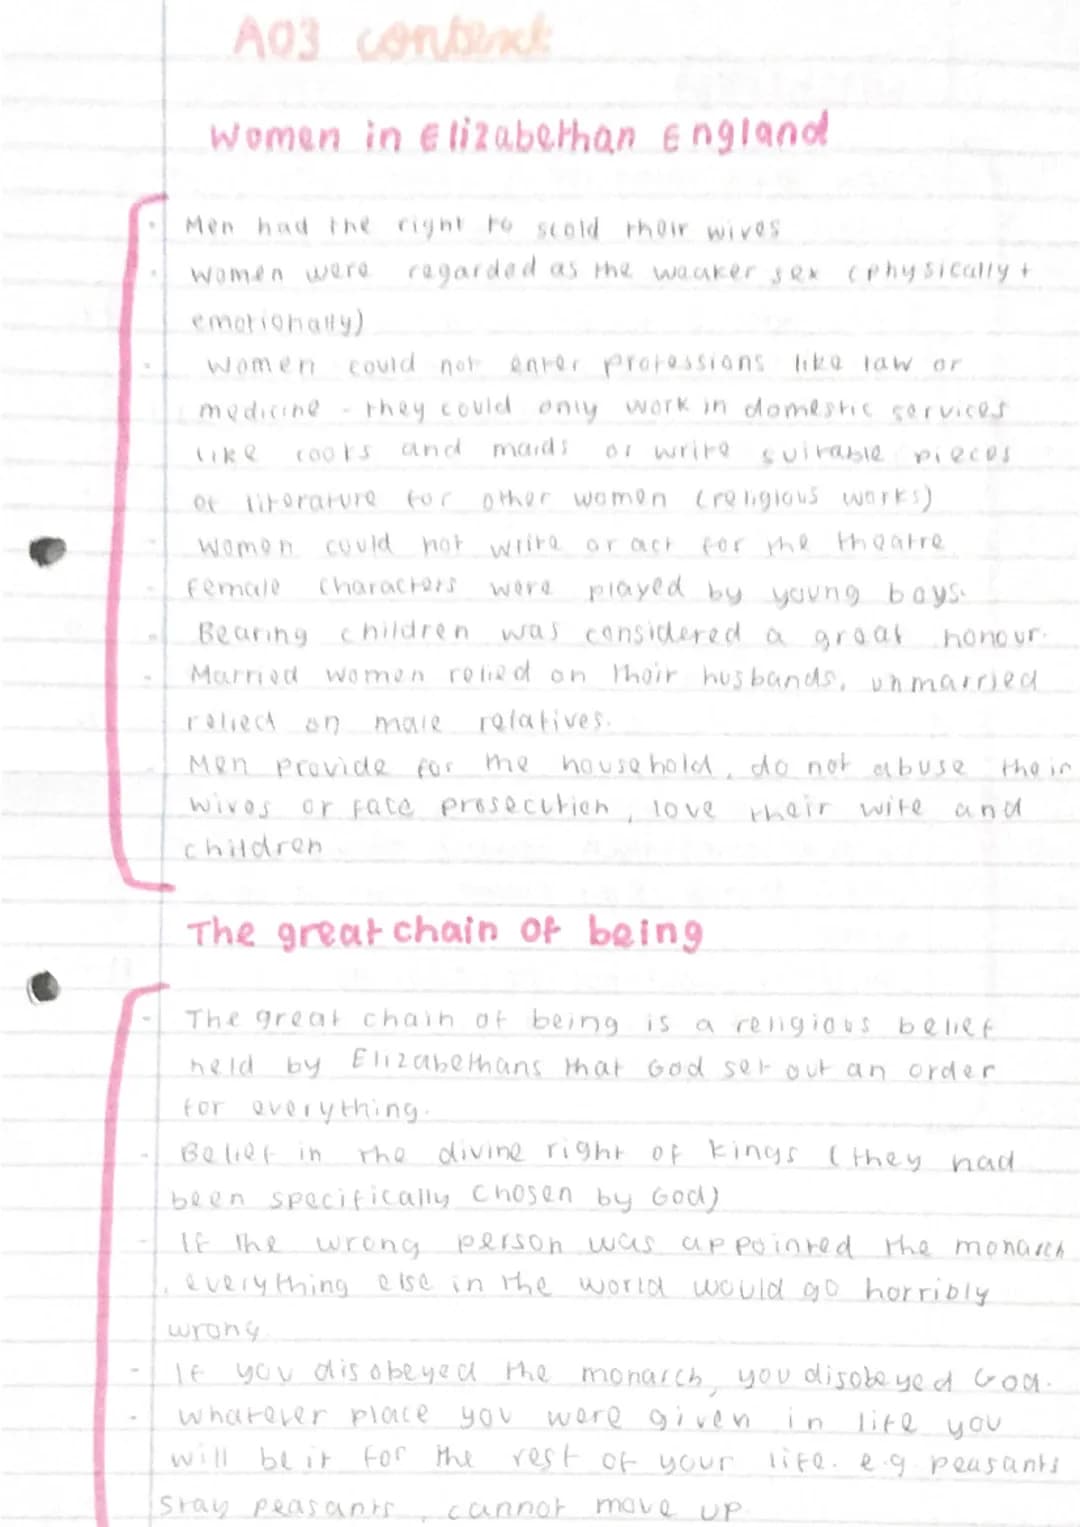 AO3 context
Women in Elizabethan England
- Men had the right to scold their wives
- Women were regarded as the weaker sex (physically +
emotionally)
- Women could not enter professions like law or
medicine - they could only work in domestic services
like cooks and maids or write suitable pieces
of literature for other women (religious works)
- Women could not write or act for the theatre
- Female characters were played by young boys.
- Bearing children was considered a great honour.
- Married women relied on their husbands, unmarried
relied on male relatives.
- Men provide for the household, do not abuse their
wives or face prosecution, love their wife and
children
The great chain of being
- The great chain of being is a religious belief
held by Elizabethans that God set out an order
for everything.
- Belief in the divine right of kings (they had
been specifically chosen by God)
- If the wrong person was appointed the monarch
, everything else in the world would go horribly
wrong.
- If you disobeyed the monarch, you disobeyed God.
- Whatever place you were given in life you
will be it for the rest of your life. e.g. peasants
stay peasants, cannot move up.